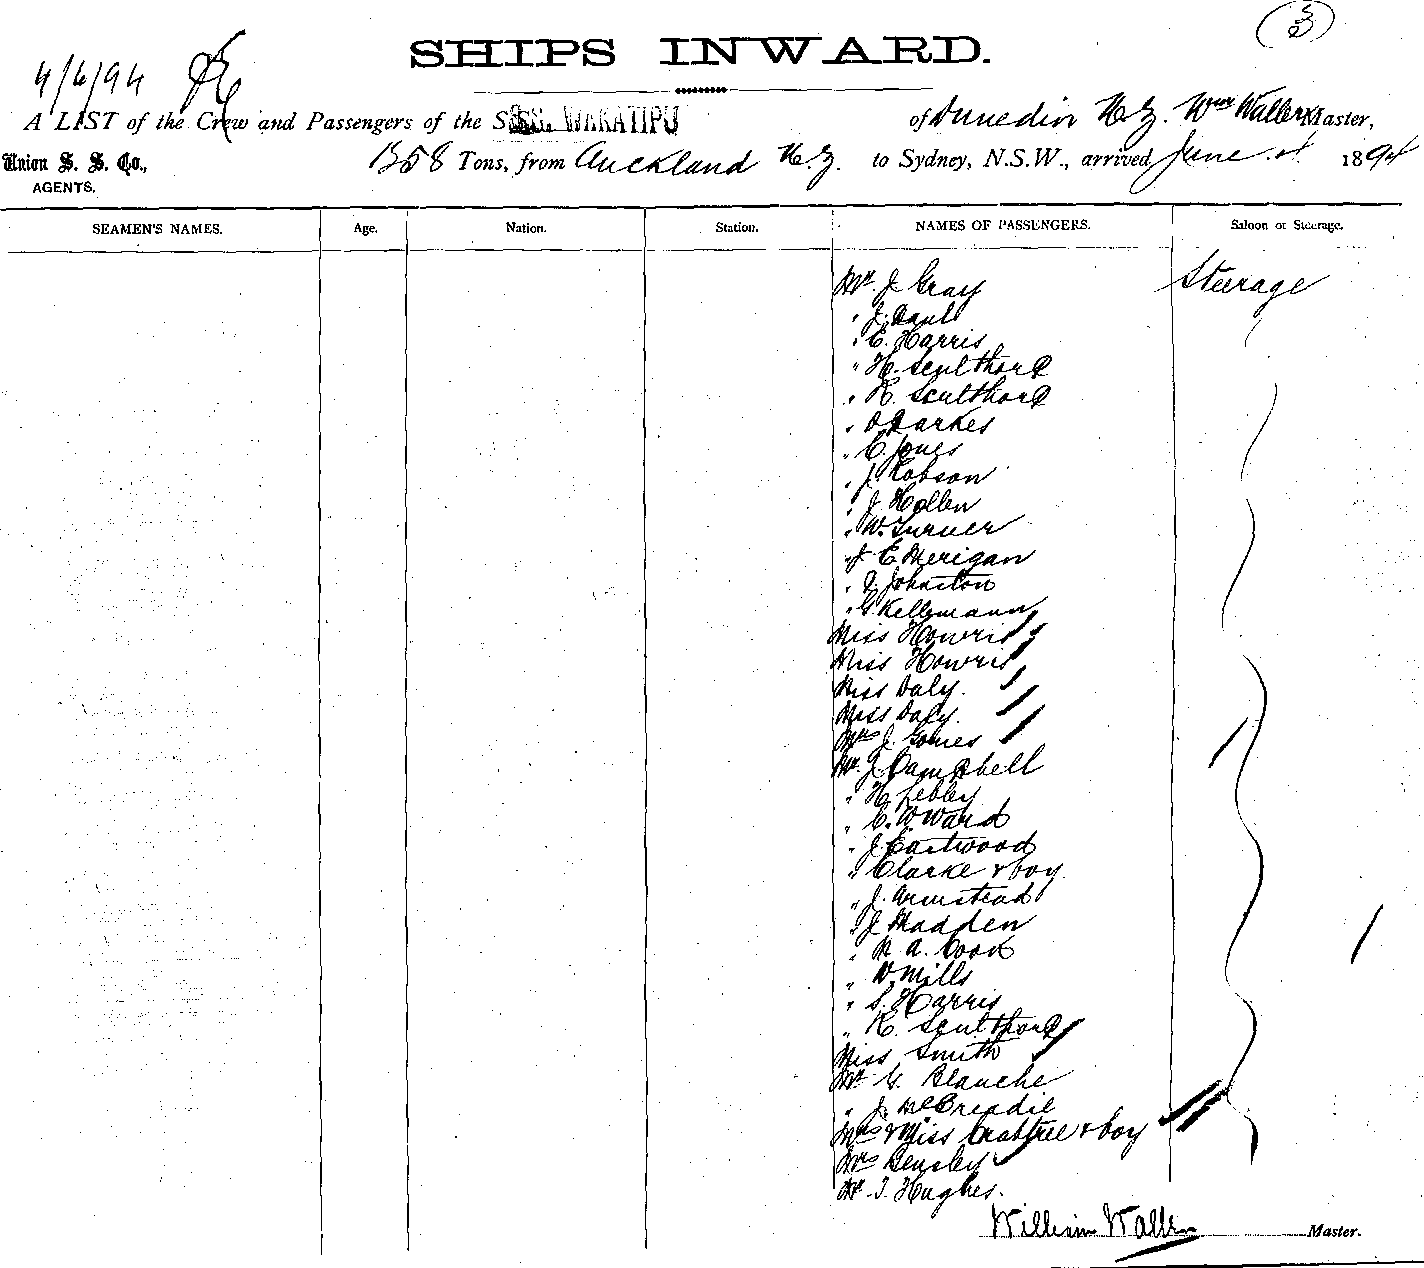 3
SHIPS INWARD.
4/6/94
A LIST of the Crew and Passengers of the S.S. WAKATIPU of Dunedin N.Z. Wm Waller Master,
Union S. S. Co., 1358 Tons, from Auckland N.Z. to Sydney, N.S.W., arrived June 4 1894
AGENTS.
SEAMEN'S NAMES. Age. Nation. Station. NAMES OF PASSENGERS. Saloon or Steerage.
Mr. J. Gray Steerage
" J. Paul
" E. Harris
" H. Sculthorp
" R. Sculthorp
" Darkes
" C. Jones
" J. Robson
" J. Hollen
" W. Turner
" J E Merigan
" Johnston
" G. Kellemann
Miss Howris
Miss Howris
Miss Daly.
Miss Daly.
Mrs J. Gomes
Mr. J. Campbell
" H. Lebley
" C. W. Ward
" J. Eastwood
" Clarke & boy
" J. Armstead
" J Madden
" A. Cook
" W. Mills
" S. Harris
" R. Sculthorp
Miss Smith
Mr G. Blanche
" J. McCreadie
Mrs & Miss Crabtree & boy
Mrs Bensley
Mr T. Hughes.
William Waller Master.